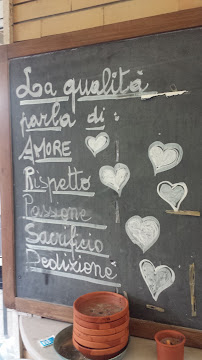 La qualità
parla di:
AMORE
Rispetto
Passione
Sacrificio
Dedizione